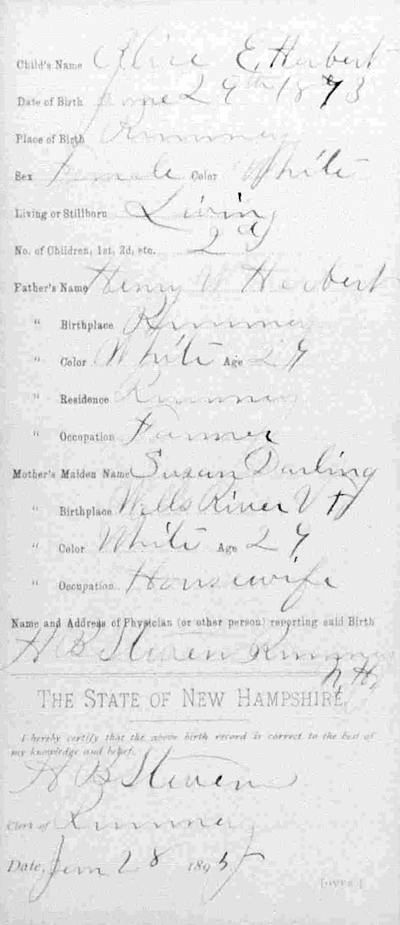 Child's Name Alice E Herbert
Date of Birth June 29th 1873
Place of Birth Rumney
Sex Female Color White
Living or Stillborn Living
No. of Children, 1st, 2d, etc. 2d
Father's Name Henry W Herbert
" Birthplace Rumney
" Color White Age 29
" Residence Rumney
" Occupation Farmer
Mother's Maiden Name Susan Darling
" Birthplace Wells River Vt
" Color White Age 29
" Occupation Housewife
Name and Address of Physician (or other person) reporting said Birth
H B Steven Rumney
N H,
THE STATE OF NEW HAMPSHIRE.
I hereby certify that the above birth record is correct to the best of
my knowledge and belief.
H B Steven
Clerk of Rumney
Date, 28 1895
[OVER.]